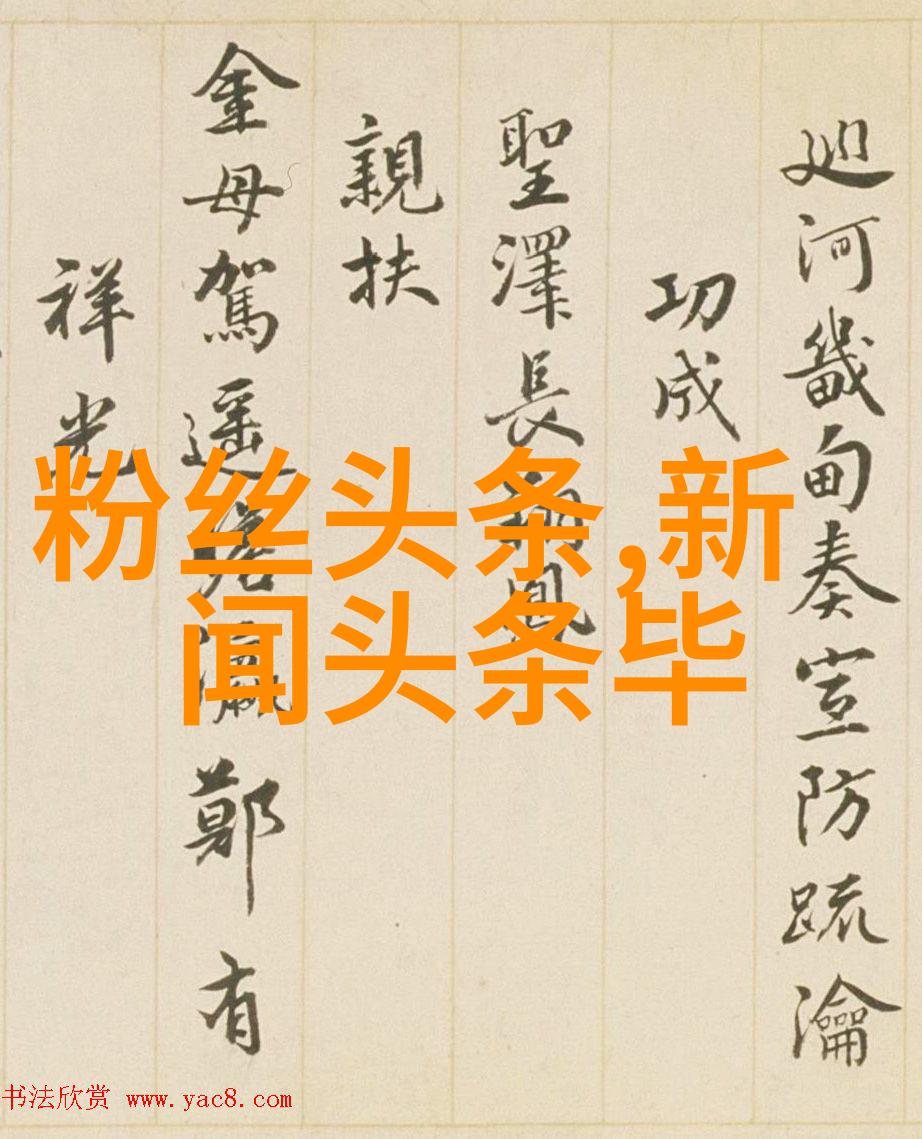 巡河畿甸奏宣防疏瀹
功成
聖澤長翔鳳
親扶
金母駕遥瞻瀛鄭有
祥光
粉丝头条,新
闻头条毕
书法欣赏 www.yac8.com